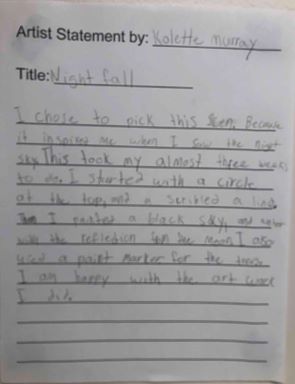 Artist Statement by: Kolette Murray
Title: Night fall
I chose to pick this Because
it inspired me when I saw the night
sky. This took my almost three weeks
to do. I started with a circle
at the top, and a scribled a line.
Then I painted a black sky, and water
with the reflection from the moon. I also
used a paint marker for the trees.
I am happy with the art work
I did.